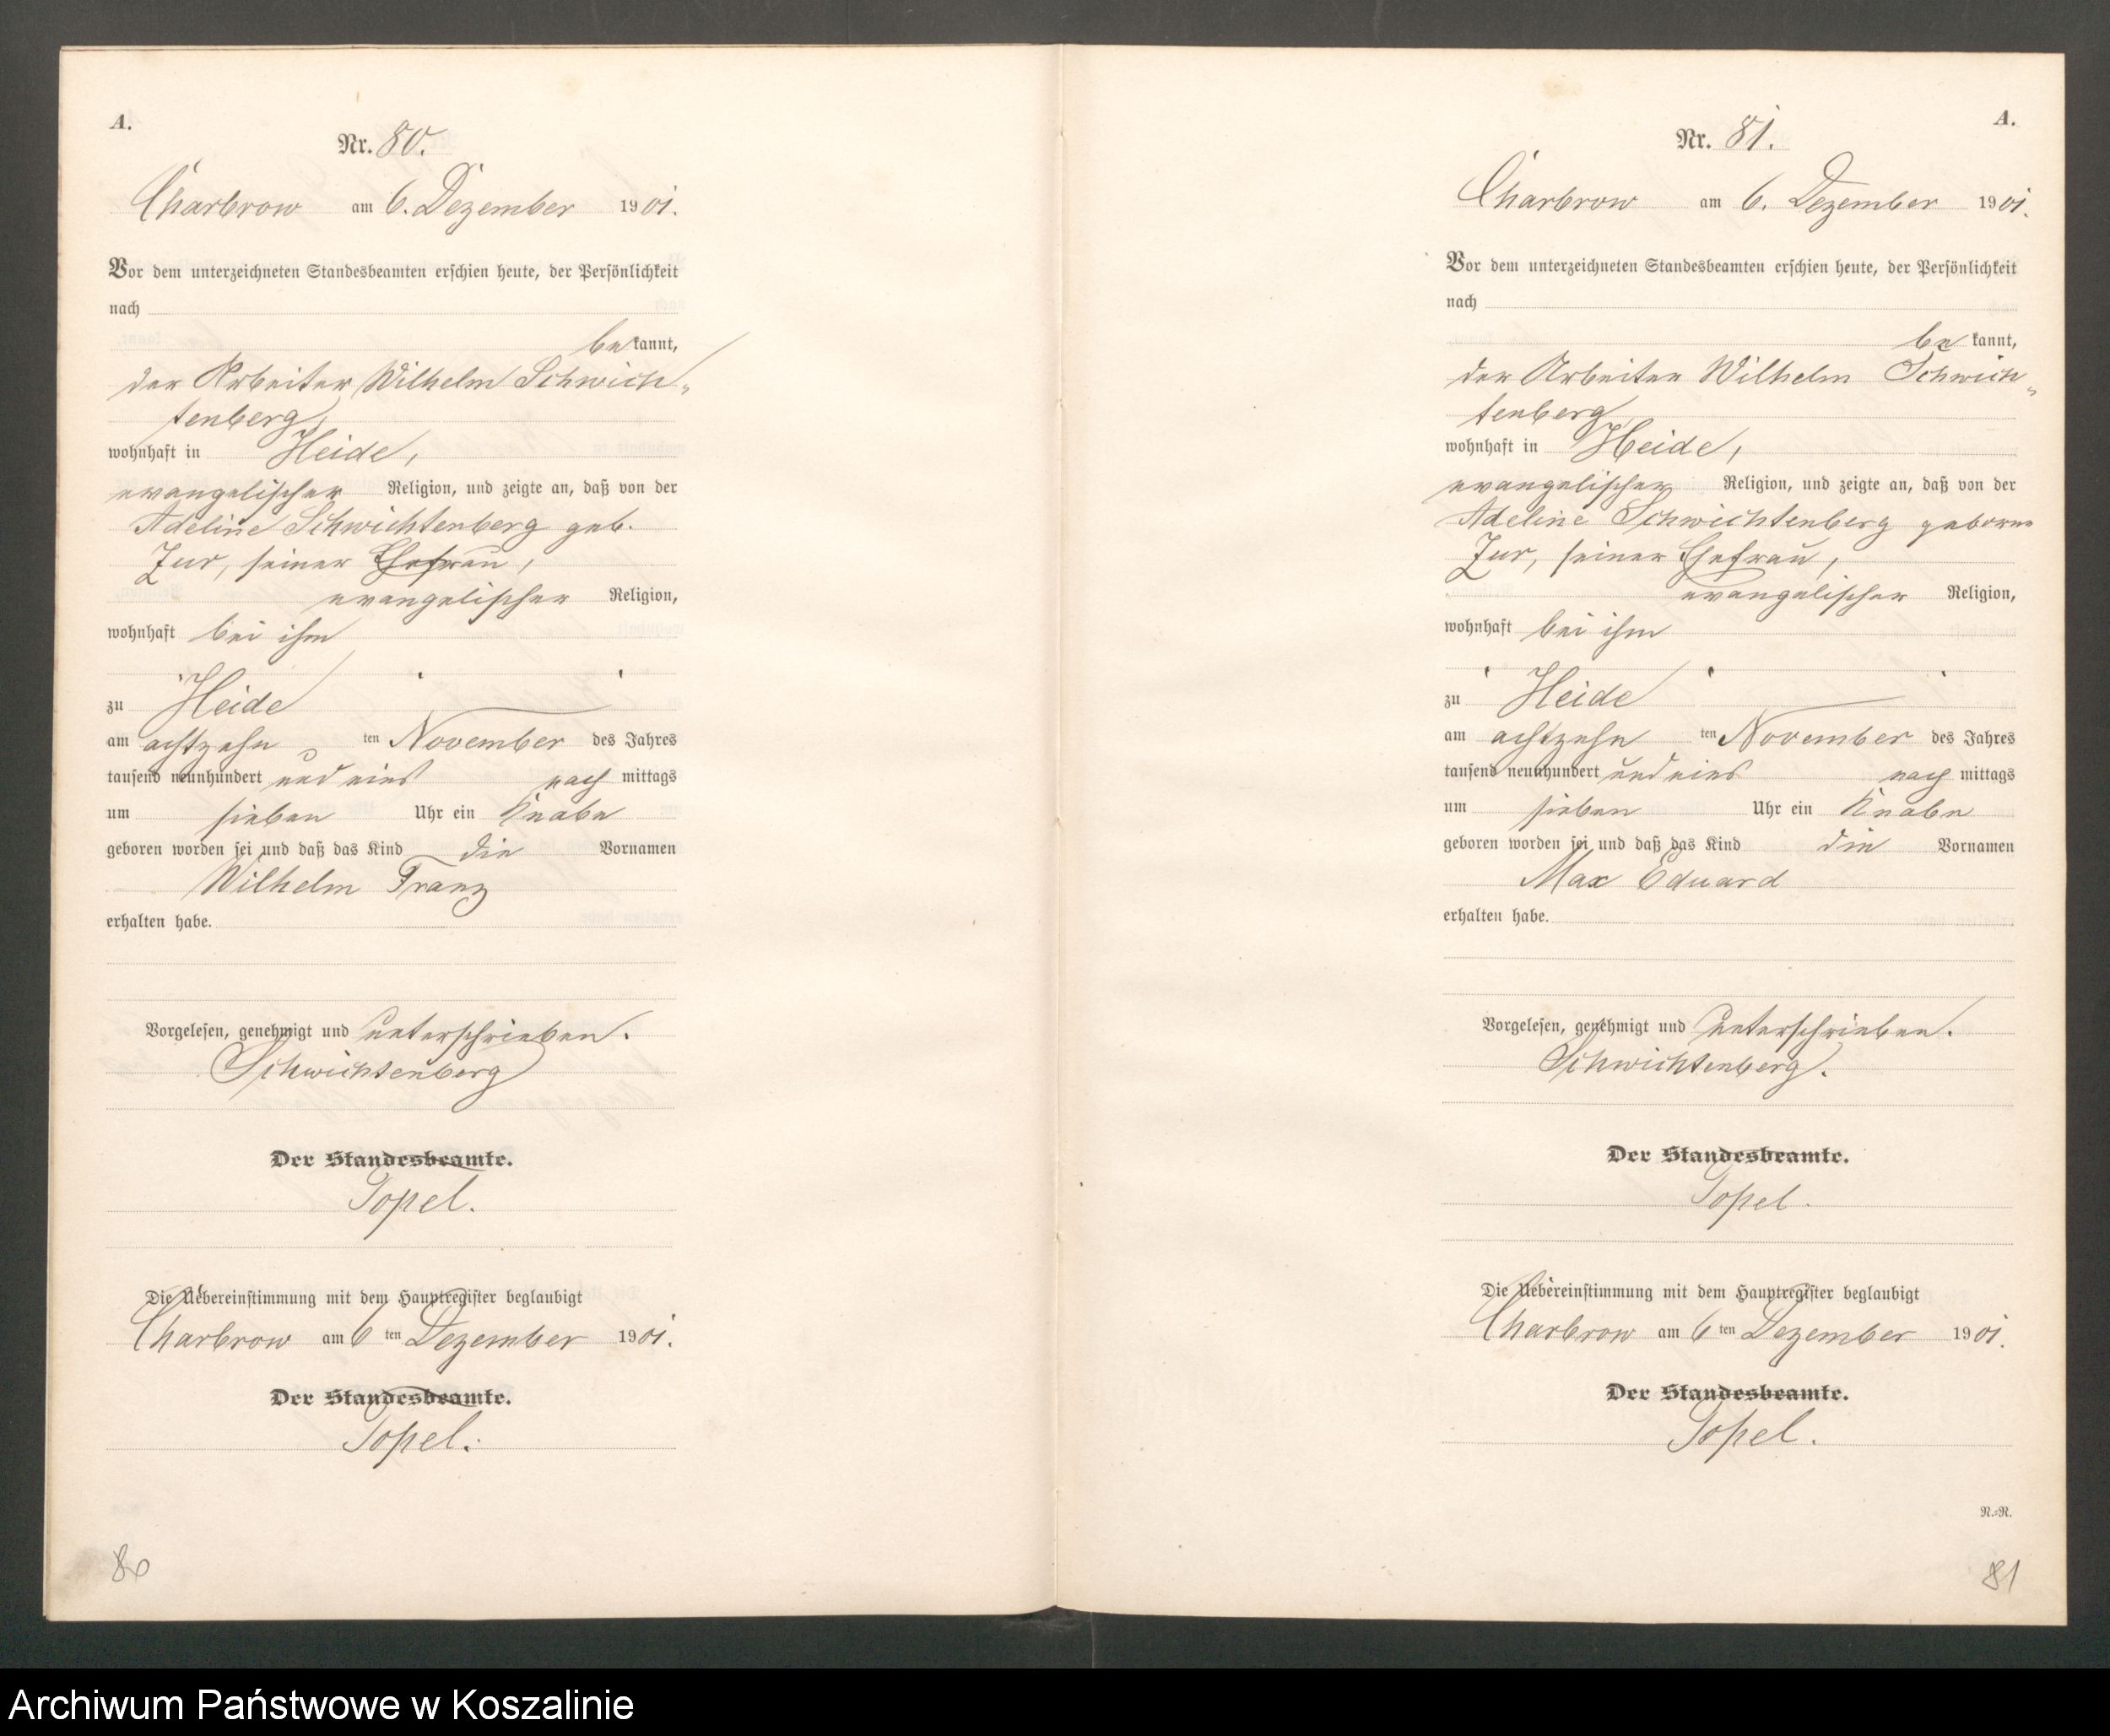 A.
Nr. 80.
Charbrow am 6. Dezember 1901.
Vor dem unterzeichneten Standesbeamten erschien heute, der Persönlichkeit
nach
be kannt,
der Arbeiter Wilhelm Schwich„
tenberg,
wohnhaft in Heide,
evangelischer Religion, und zeigte an, daß von der
Adeline Schwichtenberg geb.
Zur, seiner Ehefrau,
evangelischer Religion,
wohnhaft bei ihm
zu Heide
am achtzehn ten November des Jahres
tausend neunhundert und eins nach mittags
um sieben Uhr ein Knabe
geboren worden sei und daß das Kind die Vornamen
Wilhelm Franz
erhalten habe.
Vorgelesen, genehmigt und unterschrieben.
Schwichtenberg
Der Standesbeamte.
Topel.
Die Uebereinstimmung mit dem Hauptregister beglaubigt
Charbrow am 6 ten Dezember 1901.
Der Standesbeamte.
Topel.
80
A.
Nr. 81.
Charbrow am 6. Dezember 1901.
Vor dem unterzeichneten Standesbeamten erschien heute, der Persönlichkeit
nach
be kannt,
der Arbeiter Wilhelm Schwich„
tenberg
wohnhaft in Heide,
evangelischer Religion, und zeigte an, daß von der
Adeline Schwichtenberg geborne
Zur, seiner Ehefrau,
evangelischer Religion,
wohnhaft bei ihm
zu Heide
am achtzehn ten November des Jahres
tausend neunhundert und eins nach mittags
um sieben Uhr ein Knabe
geboren worden sei und daß das Kind die Vornamen
Max Eduard
erhalten habe.
Vorgelesen, genehmigt und unterschrieben.
Schwichtenberg.
Der Standesbeamte.
Topel.
Die Uebereinstimmung mit dem Hauptregister beglaubigt
Charbrow am 6 ten Dezember 1901.
Der Standesbeamte.
Topel.
R.-R.
81
Archiwum Państwowe w Koszalinie